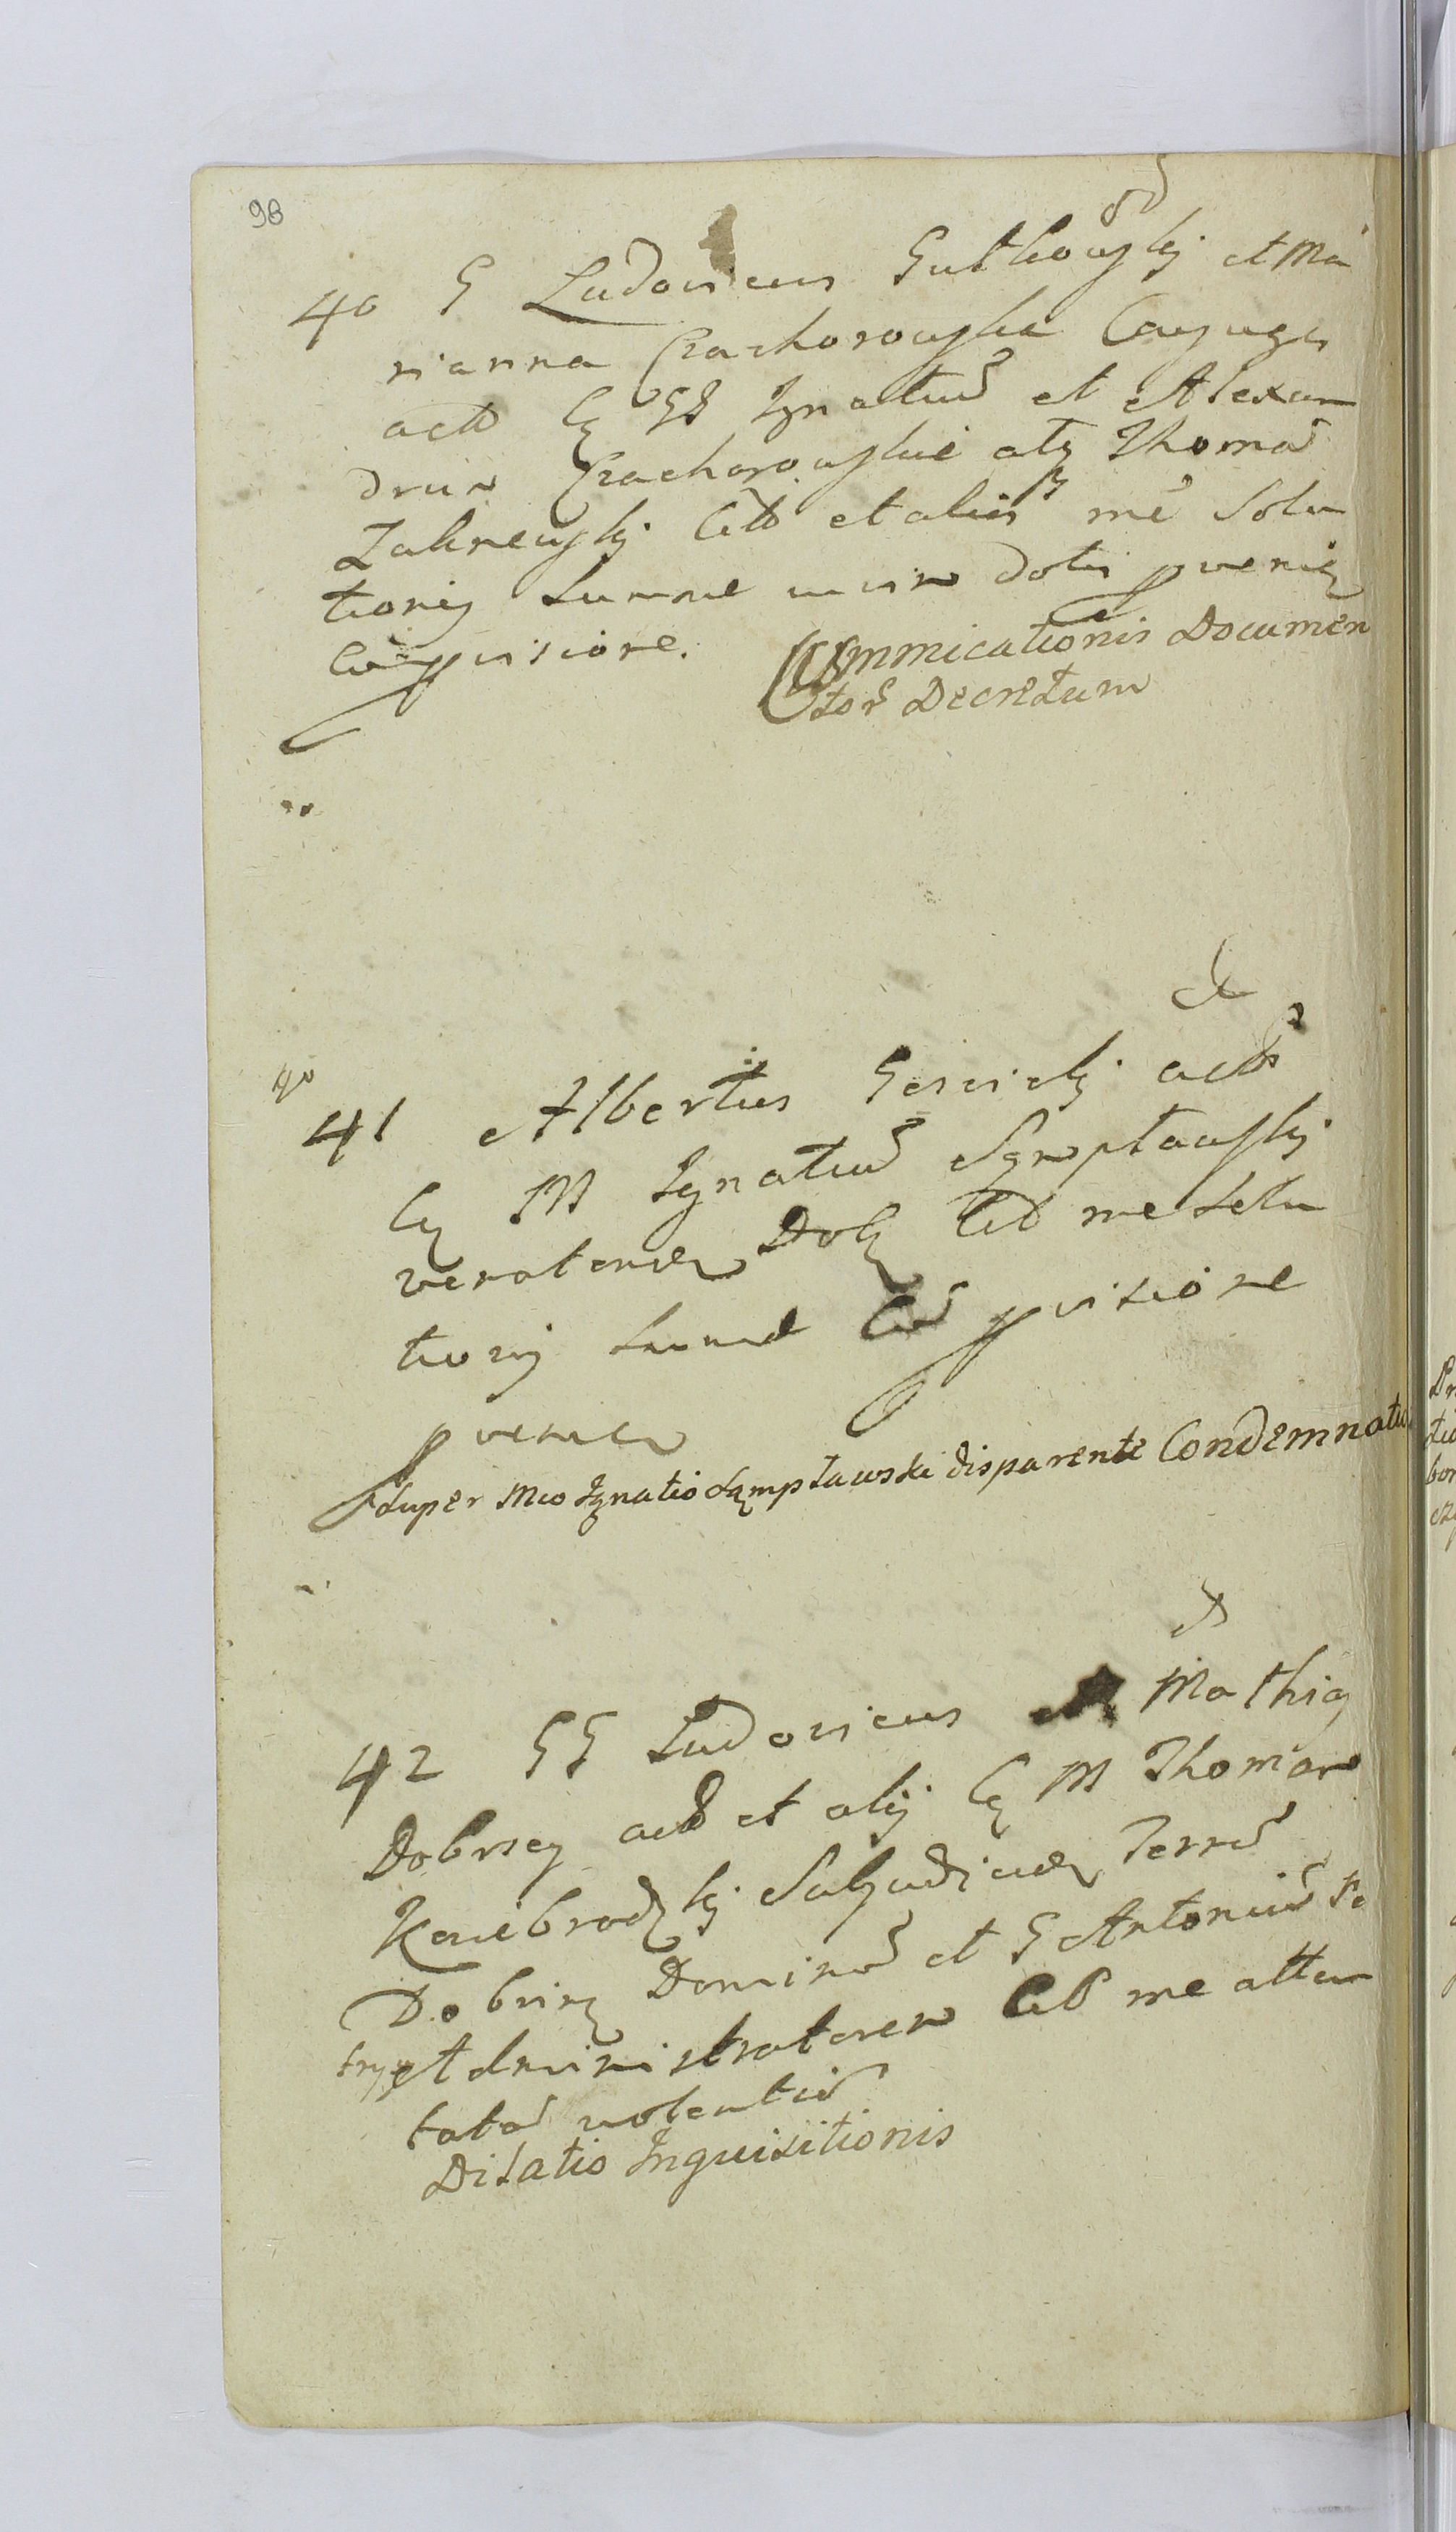 98
40 G Ludovicus Gutkowskj et Ma
rianna Czachorowska Conjuges
act C GG Ignatiu et Alexan
drum Czachorowskie atq Thoma
Zakrewskj Citt et aliis me Solu
tionis Summe dotis pvenie
Cu pvisione.
Communicationis Documen
tor Decretum
40
41 Albertus Gosickj act
C M Ignatiu Sępławskj
venatorem Dob Citt me solu
tionis summe Cu pvisione
pvenien
Super Mco Ignatio Sąmpławski disparente Condemnatio
42 GG Ludovicus Mathias
Dobrscy act et alij C M Thomam
Koniebrodzkj Subjudicem Terre
Dobrin Domino et G Antoniu
Administratorem Citt me atten
tata violentie
Dilatio Inquisitionis